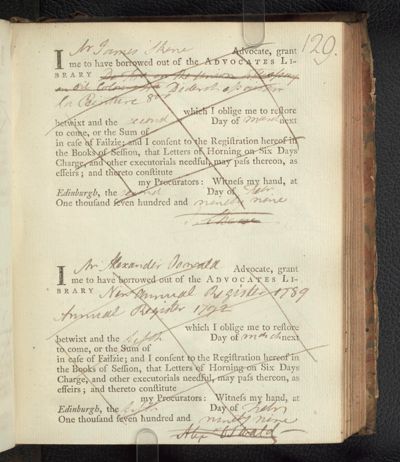 129.
I Mr James Skene Advocate, grant
me to have borrowed out of the ADVOCATES LI-
BRARY
Diderot
la Peinture 8vo
which I oblige me to restore
betwixt and the second Day of March next
to come, or the Sum of
in case of Failzie; and I consent to the Registration hereof in
the Books of Session, that Letters of Horning on Six Days
Charge, and other executorials needful, may pass thereon, as
effeirs; and thereto constitute
my Procurators: Witness my hand, at
Edinburgh, the second Day of Febr
One thousand seven hundred and ninety nine
J Skene
I Mr Alexander Oswald Advocate, grant
me to have borrowed out of the ADVOCATES LI-
BRARY New Annual Register 1789
Annual Register 1792
which I oblige me to restore
betwixt and the fifth Day of March next
to come, or the Sum of
in case of Failzie; and I consent to the Registration hereof in
the Books of Session, that Letters of Horning on Six Days
Charge, and other executorials needful, may pass thereon, as
effeirs; and thereto constitute
my Procurators: Witness my hand, at
Edinburgh, the fifth Day of Febry
One thousand seven hundred and ninety nine
Alex Oswald